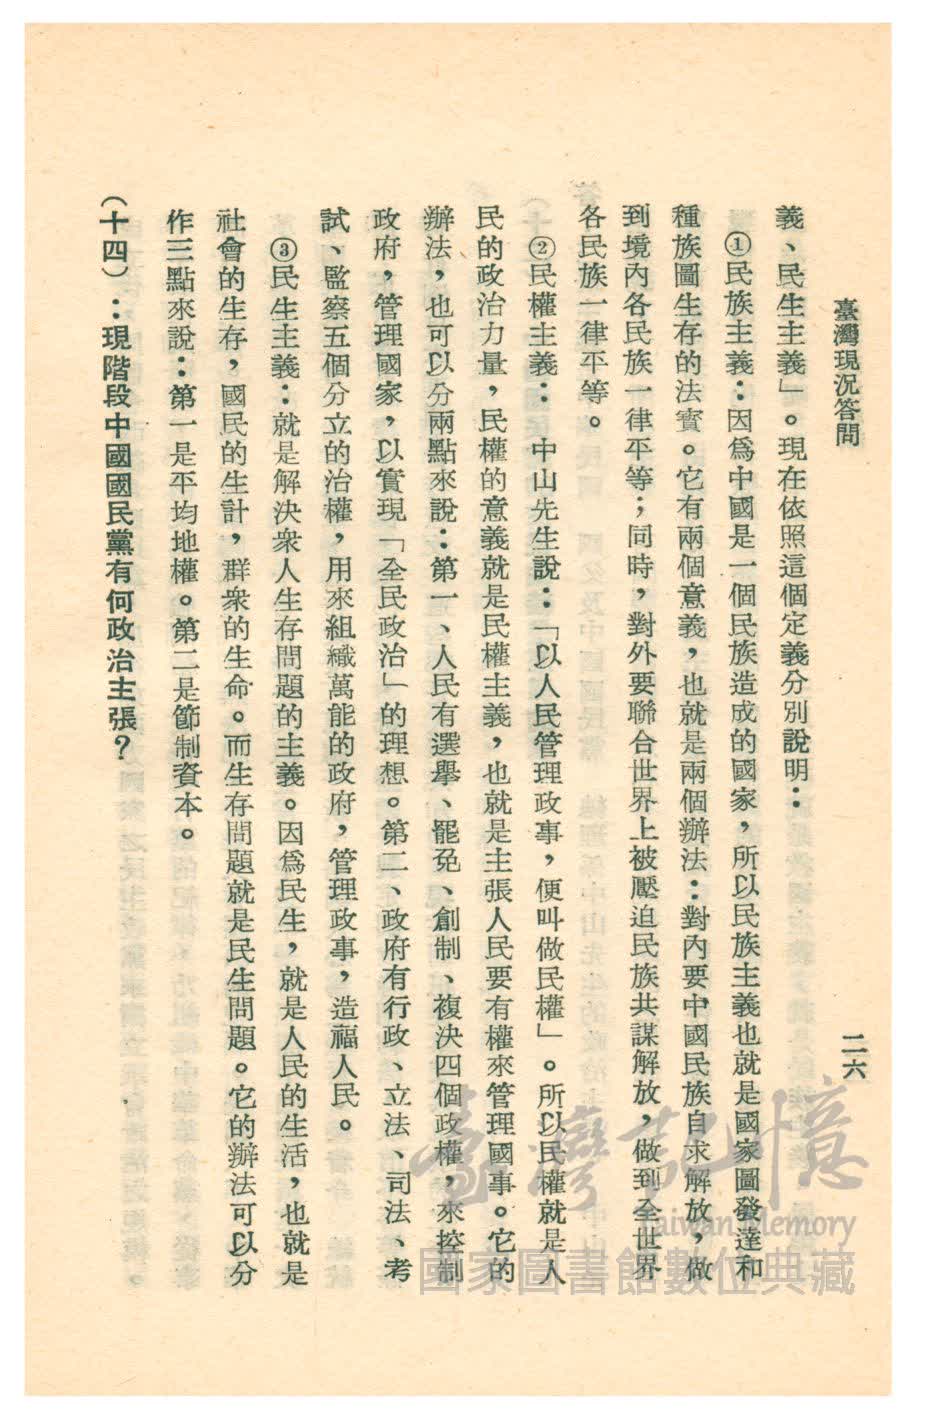 臺灣現況答問
二六
義、民生主義」。現在依照這個定義分別說明：
①民族主義：因爲中國是一個民族造成的國家，所以民族主義也就是國家圖發達和
種族圖生存的法寶。它有兩個意義，也就是兩個辦法：對內要中國民族自求解放，做
到境內各民族一律平等；同時，對外要聯合世界上被壓迫民族共謀解放，做到全世界
各民族一律平等。
②民權主義：　中山先生說：「以人民管理政事，便叫做民權」。所以民權就是人
民的政治力量，民權的意義就是民權主義，也就是主張人民要有權來管理國事。它的
辦法，也可以分兩點來說：第一、人民有選舉、罷免、創制、複決四個政權，來控制
政府，管理國家，以實現「全民政治」的理想。第二、政府有行政、立法、司法、考
試、監察五個分立的治權，用來組織萬能的政府，管理政事，造福人民。
③民生主義：就是解決衆人生存問題的主義。因爲民生，就是人民的生活，也就是
社會的生存，國民的生計，群衆的生命。而生存問題就是民生問題。它的辦法可以分
作三點來說：第一是平均地權。第二是節制資本。
（十四）：現階段中國國民黨有何政治主張？
臺灣記憶
Taiwan Memory
國家圖書館數位典藏